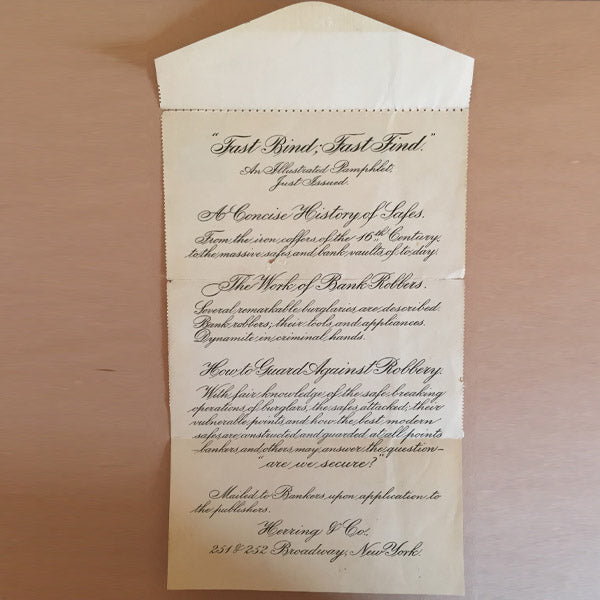 "Fast Bind; Fast Find."
An Illustrated Pamphlet,
Just Issued.
A Concise History of Safes.
From the iron coffers of the 16th Century,
to the massive safes and bank vaults of to-day.
The Work of Bank Robbers.
Several remarkable burglaries are described.
Bank robbers; their tools and appliances.
Dynamite in criminal hands.
How to Guard Against Robbery.
With fair knowledge of the safe breaking
operations of burglars, the safes attacked; their
vulnerable points and how the best modern
safes are constructed and guarded at all points
bankers and others may answer the question—
"are we secure?"
Mailed to Bankers upon application to
the publishers.
Herring & Co.
251 & 252 Broadway, New York.